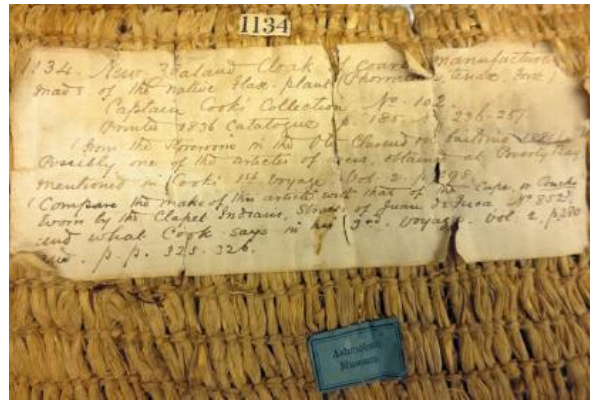 1134
1134. New Zealand Cloak of coarse manufacture
made of the native flax-plant (Phormium tenax. Forst.)
Captain Cook's Collection No. 102.
Printed 1836 Catalogue p. 185. 236-257.
(From the Storeroom in the Old Clarendon Building 1886)
Possibly one of the articles of dress, obtained at Poverty Bay
mentioned in Cook's 1st Voyage Vol 2. p. 98.
(Compare the make of this article with that of the Cape, or
worn by the Claset Indians, Straits of Juan de Fuca No 852,
and what Cook says in his 3rd. Voyage. Vol 2. p 280
p. p. 325. 326.
Ashmolean
Museum